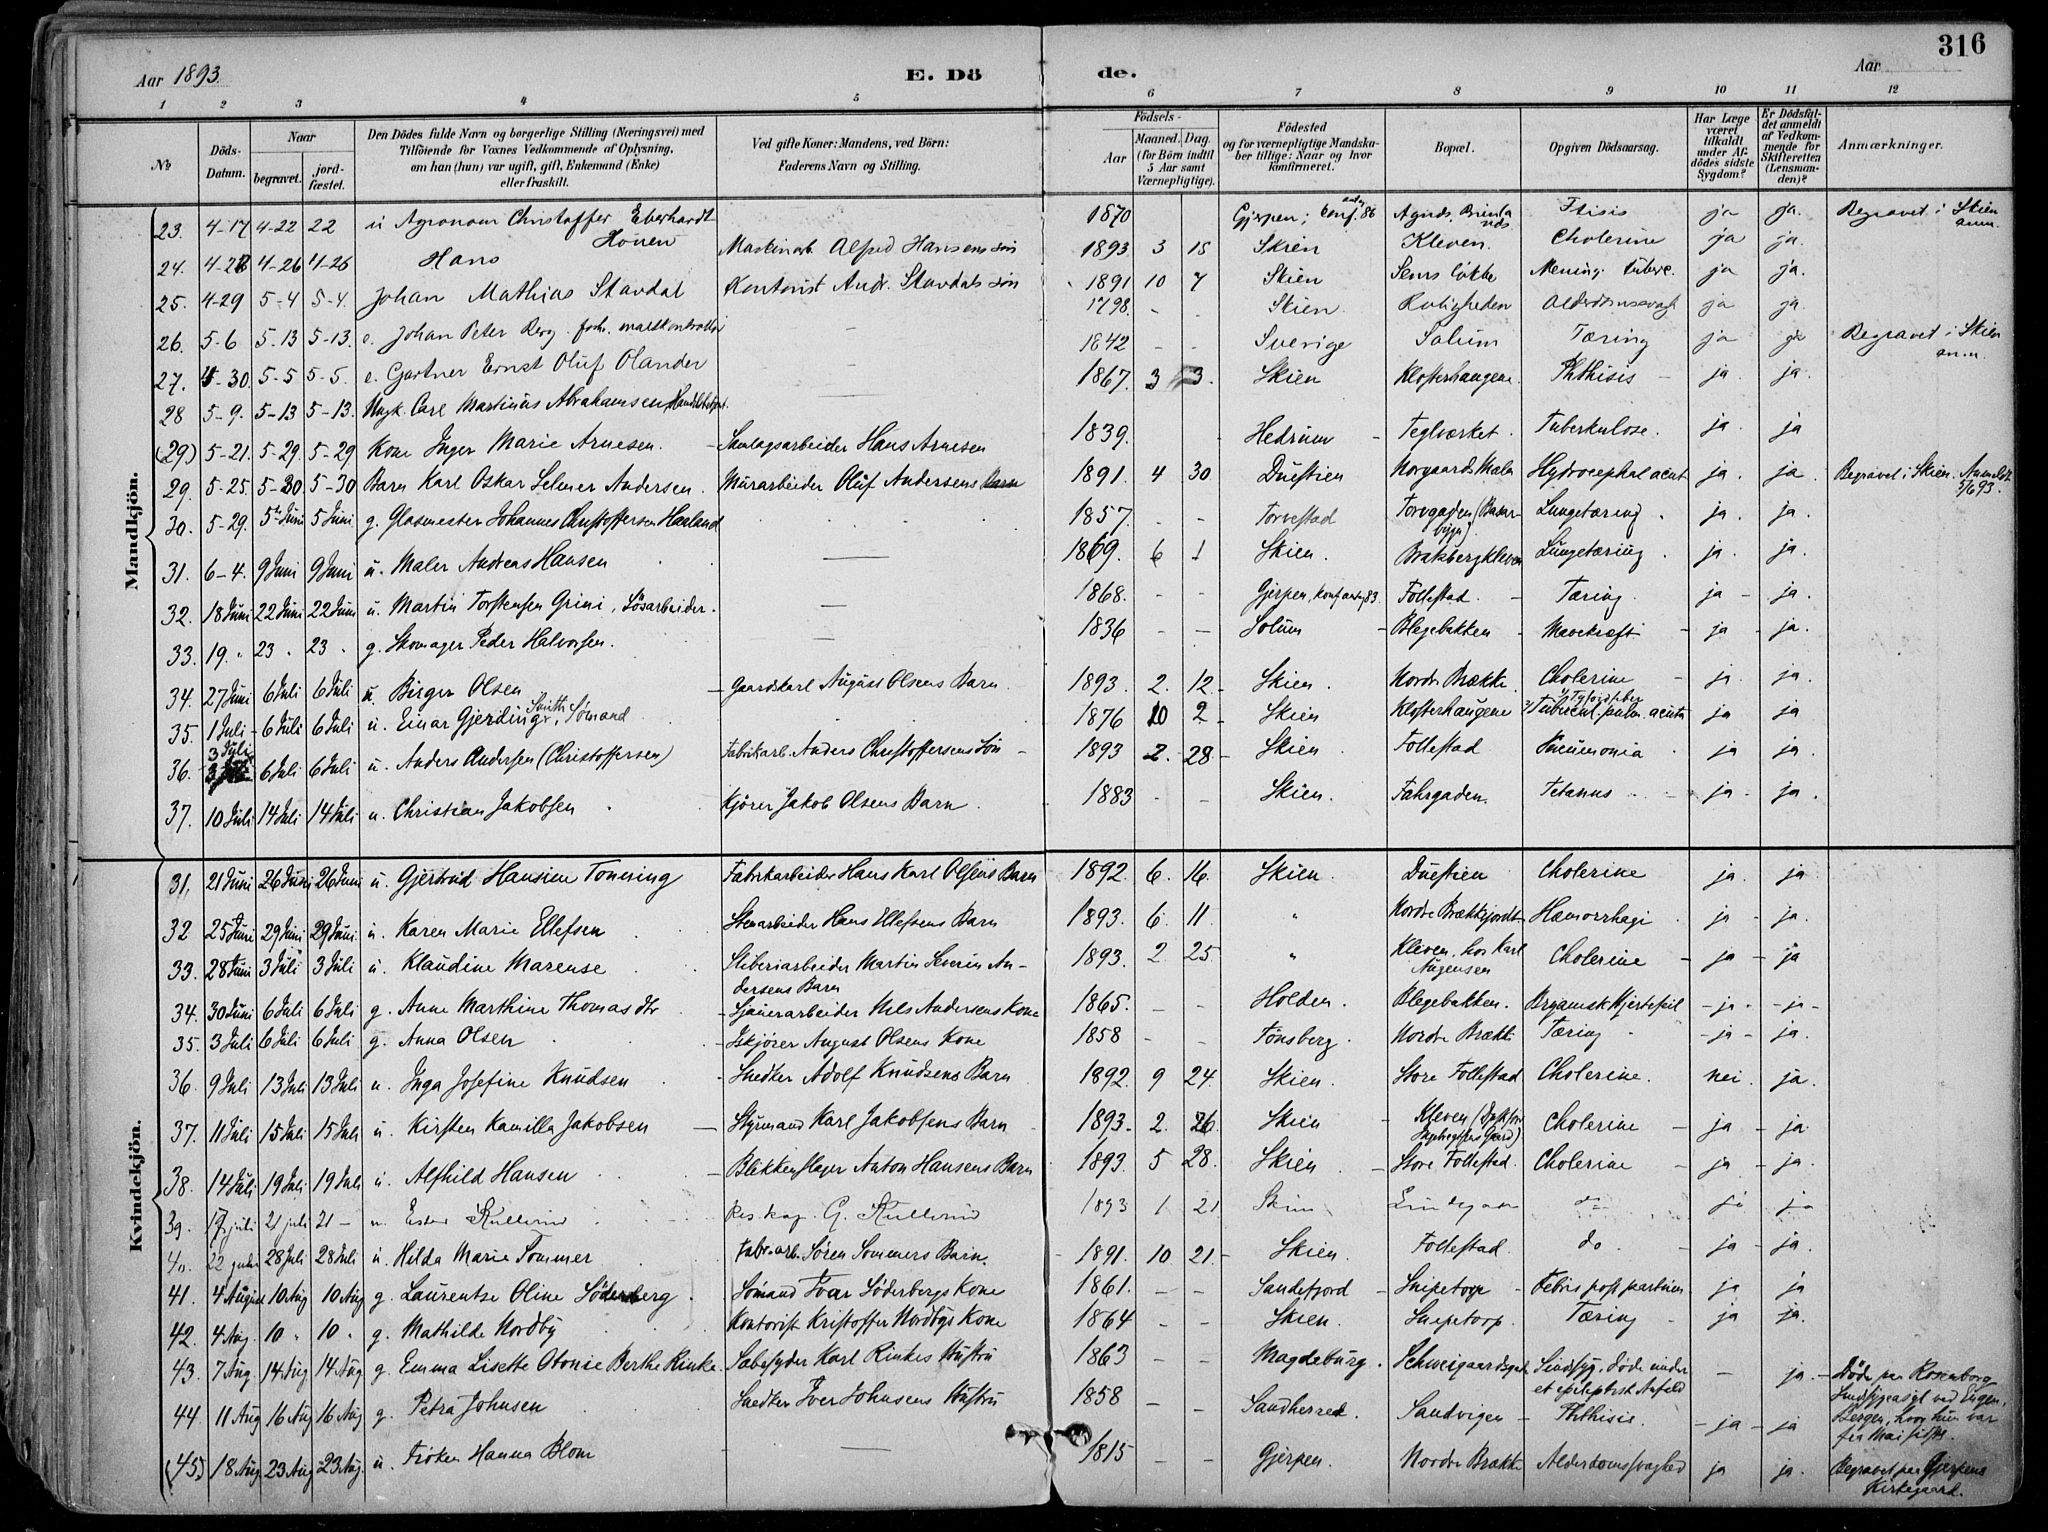 316
Aar 1893. E. Dö de. Aar
1 2 3 4 5 6 7 8 9 10 11 12
No Döds-Datum. Naar begravet. jord-fæstet. Den Dödes fulde Navn og borgerlige Stilling (Næringsvei) med Tilföiende for Voxnes Vedkommende af Oplysning, om han (hun) var ugift, gift, Enkemand (Enke) eller fraskilt. Ved gifte Koner: Mandens, ved Börn: Faderens Navn og Stilling. Födsels- Aar Maaned. Dag. (for Börn indtil 5 Aar samt Værnepligtige). Födested og for værnepligtige Mandskaber tillige: Naar og hvor konfirmeret. Bopæl. Opgiven Dödsaarsag. Har Læge været tilkaldt under Afdödes sidste Sygdom? Er Dödsfaldet anmeldt af Vedkommende for Skifteretten (Lensmanden)? Anmærkninger.
Mandkjön.
23. 4-17 4-22 22 u Agronom Christoffer Eberhardt Hönen 1870 Gjerpen; Conf. 86 Ftisis ja ja. Begravet i Skien anm.
24. 4-23 4-26 4-26 Hans Maskinarb Alfred Hansens søn 1893 3 15 Skien Kleven. Cholerine ja ja.
25. 4-29 5-4 5-4. Johan Mathias Stavdal Kontorist Andr. Stavdals søn 1891 10 7 Skien Mening. tuberc. ja ja.
26. 5-6 5-13 5-13. e. Johan Peter Berg. 1798 - - Skien Roligheden Alderdomssvagh ja ja.
27. 4-30. 5-5 5-5. e. Gartner Ernst Oluf Olander 1842 - - Sverige Solum Tæring ja ja Begravet i Skien anm.
28 5-9. 5-13 5-13. Ungk. Carl Martinus Abrahamsen 1867. 3 3. Skien Klosterhaugene. Phthisis ja. ja.
(29) 5-21. 5-29. 5-29 Kone Inger Marie Arnesen. Samlagsarbeider Hans Arnesen 1839. Hedrum Teglværket. Tuberkulose. ja. ja
29. 5-25. 5-30 5-30 Barn Karl Oskar Selmer Andersen. Murarbeider Oluf Andersens Barn 1891. 4 30 Duestien Hydrocephal acut ja. ja. Begravet i Skien. Anmeldt 5/6 93.
30. 5-29. 5 Juni 5 Juni g. Glasmester Johannes Christoffersen Haaland 1857. - - Torvestad Torvgaden (Basarbygn) Lungetæring. ja. ja.
31. 6-4. 9 Juni 9 Juni u. Maler Andreas Hansen 1869. 6 1 Skien. Bratsbergkleven Lungetæring. ja. ja.
32. 18 Juni 22 Juni 22 Juni u. Martin Torstensen Grini, Løsarbeider. 1868. Gjerpen, Konf. 83. Follestad. Tæring. ja - ja.
33. 19. " 23 " 23 " g. Skomager Peder Halvorsen. 1836 - - Solum Blegebakken Mavekræft ja - ja.
34. 27 Juni 6 Juli 6 Juli u. Birger Olsen Gaardskarl August Olsens Barn. 1893. 2. 12. Skien. Nordre Brække. Cholerine ja. ja.
35. 1 Juli 6 Juli 6 Juli u. Einar Gjerding Smith, Sømand 1876 10 2 Skien Klosterhaugene Tubercul. pulm. acuta ja ja
36. 3 Juli 6 Juli 6 Juli u. Anders Andersen (Christoffersen) Fabrikarb. Anders Christoffersens Søn 1893 2. 28. Skien Follestad Pneumonia ja ja.
37. 10 Juli 14 Juli 14 Juli u. Christian Jakobsen Kjører Jakob Olsens Barn. 1883 - - Skien. Fahrgaden. Tetanus ja. ja.
Kvindekjön.
31. 21 Juni 26 Juni 26 Juni u. Gjertrud Hansine Tonning Fabrikarbeider Hans Karl Olsens Barn 1892. 6. 16. Skien. Duestien Cholerine ja. ja.
32 25 Juni 29 Juni 29 Juni u. Karen Marie Ellefsen Stenarbeider Hans Ellefsens Barn 1893. 6. 11. " Hæmorrhagi ja - ja.
33. 28 Juni 3 Juli 3 Juli u. Klaudine Marense Sliberiarbeider Martin Severin Andersens Barn 1893. 2. 25 " Kleven, hos Karl Cholerine - ja - ja
34. 30 Juni 6 Juli 6 Juli g. Anne Marthine Thomasdtr Sjauerarbeider Nels Andersens Kone 1865. - - Holden. Blegebakken. - ja - ja -
35. 3 Juli 6 Juli 6 Juli g. Anna Olsen Iskjører August Olsens Kone 1858 - - Tønsberg. Nordre Brække Tæring - ja - ja.
36. 9 Juli 13 Juli 13 Juli u. Inga Josefine Knudsen Snedker Adolf Knudsens Barn 1892. 9 24. Skien. Store Follestad Cholerine. nei. ja.
37. 11 Juli 15 Juli 15 Juli u. Kirsten Kamilla Jakobsen Styrmand Karl Jakobsens Barn 1893. 2. 26. Skien Kleven Cholerine - ja - ja
38. 14 Juli 19 Juli 19 Juli u. Alfhild Hansen Blikkenslager Anton Hansens Barn 1893. 5 28. Skien Store Follestad. Cholerine ja - ja.
39. 17 juli 21 juli 21 - u. Ester Kullerud G. Kullerud 1893 1 21 Skien do ja ja
40. 22 juli 28 Juli 28 Juli u. Hilda Marie Sommer Fabr.arb. Søren Sommers Barn. 1891. 10 21. Skien. Follestad. do. ja - ja.
41. 4 August 10 Aug 10 Aug g. Laurentse Oline Söderberg Sømand Ivar Söderbergs Kone 1861. - - Sandefjord Snipetorp Febris post partum ja ja
42. 4 Aug. 10 " 10 " g. Mathilde Nordby Kontorist Kristoffer Nordbys Kone 1864 - - Skien. Snipetorp Tæring ja ja.
43. 7 Aug 14 Aug 14 Aug g. Emma Lisette Otonie Berthe Rinke Sæbesyder Karl Rinkes Hustru 1863 - - Magdeburg. Schweigaardsgade Sindssyg, døde under et epileptisk Anfald - ja Døde paa Rosenborg Sindssygeasyl ved Bergen, hvor hun var fra Mai sidst.
44. 11 Aug 16 Aug 16 Aug g. Petra Johnsen Snedker Iver Johnsens Hustru 1858 - - Sandherred. Sandvigen Phthisis. - ja - ja
(45) 18 Aug 23 Aug 23 Aug. u. Frøken Hanna Blom 1815 - - Gjerpen. Nordre Brække Alderdomssvaghed ja ja. Begravet paa Gjerpens Kirkegaard.